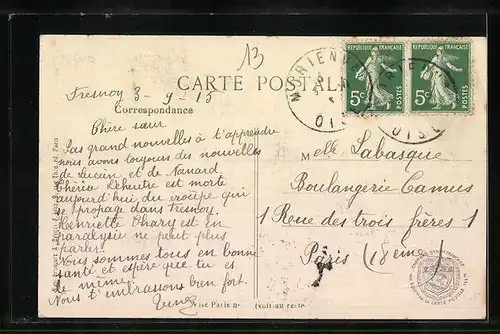 13
CARTE POSTALE
RÉPUBLIQUE FRANÇAISE
5c POSTES
RÉPUBLIQUE FRANÇAISE
5c POSTES
MORIENVAL
OISE
OISE
Fresnoy 3-9-15
Correspondance
Chère sœur
Pas grand nouvelles à t'apprendre
nous avons toujours des nouvelles
de Lucien et de Nanard
Thérèse Lehutre est morte
aujourd'hui du croupe qui
se propage dans Fresnoy.
Henriette Chary est en
paralysie ne peut plus
parler.
Nous sommes tous en bonne
santé et espère que tu es
de même.
Nous t'embrassons bien fort.
Melle Labasque
Boulangerie Camus
1 Rue des trois frères 1
Paris (18eme)
Visé Paris n°
(voir au recto